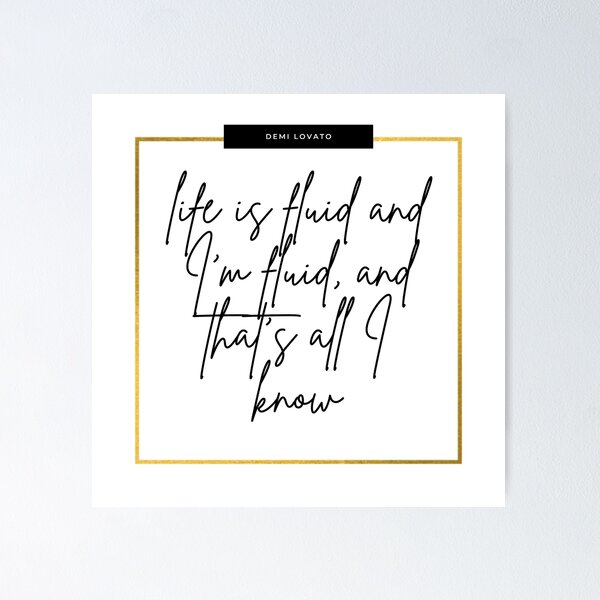 DEMI LOVATO
life is fluid and
I'm fluid, and
that's all I
know